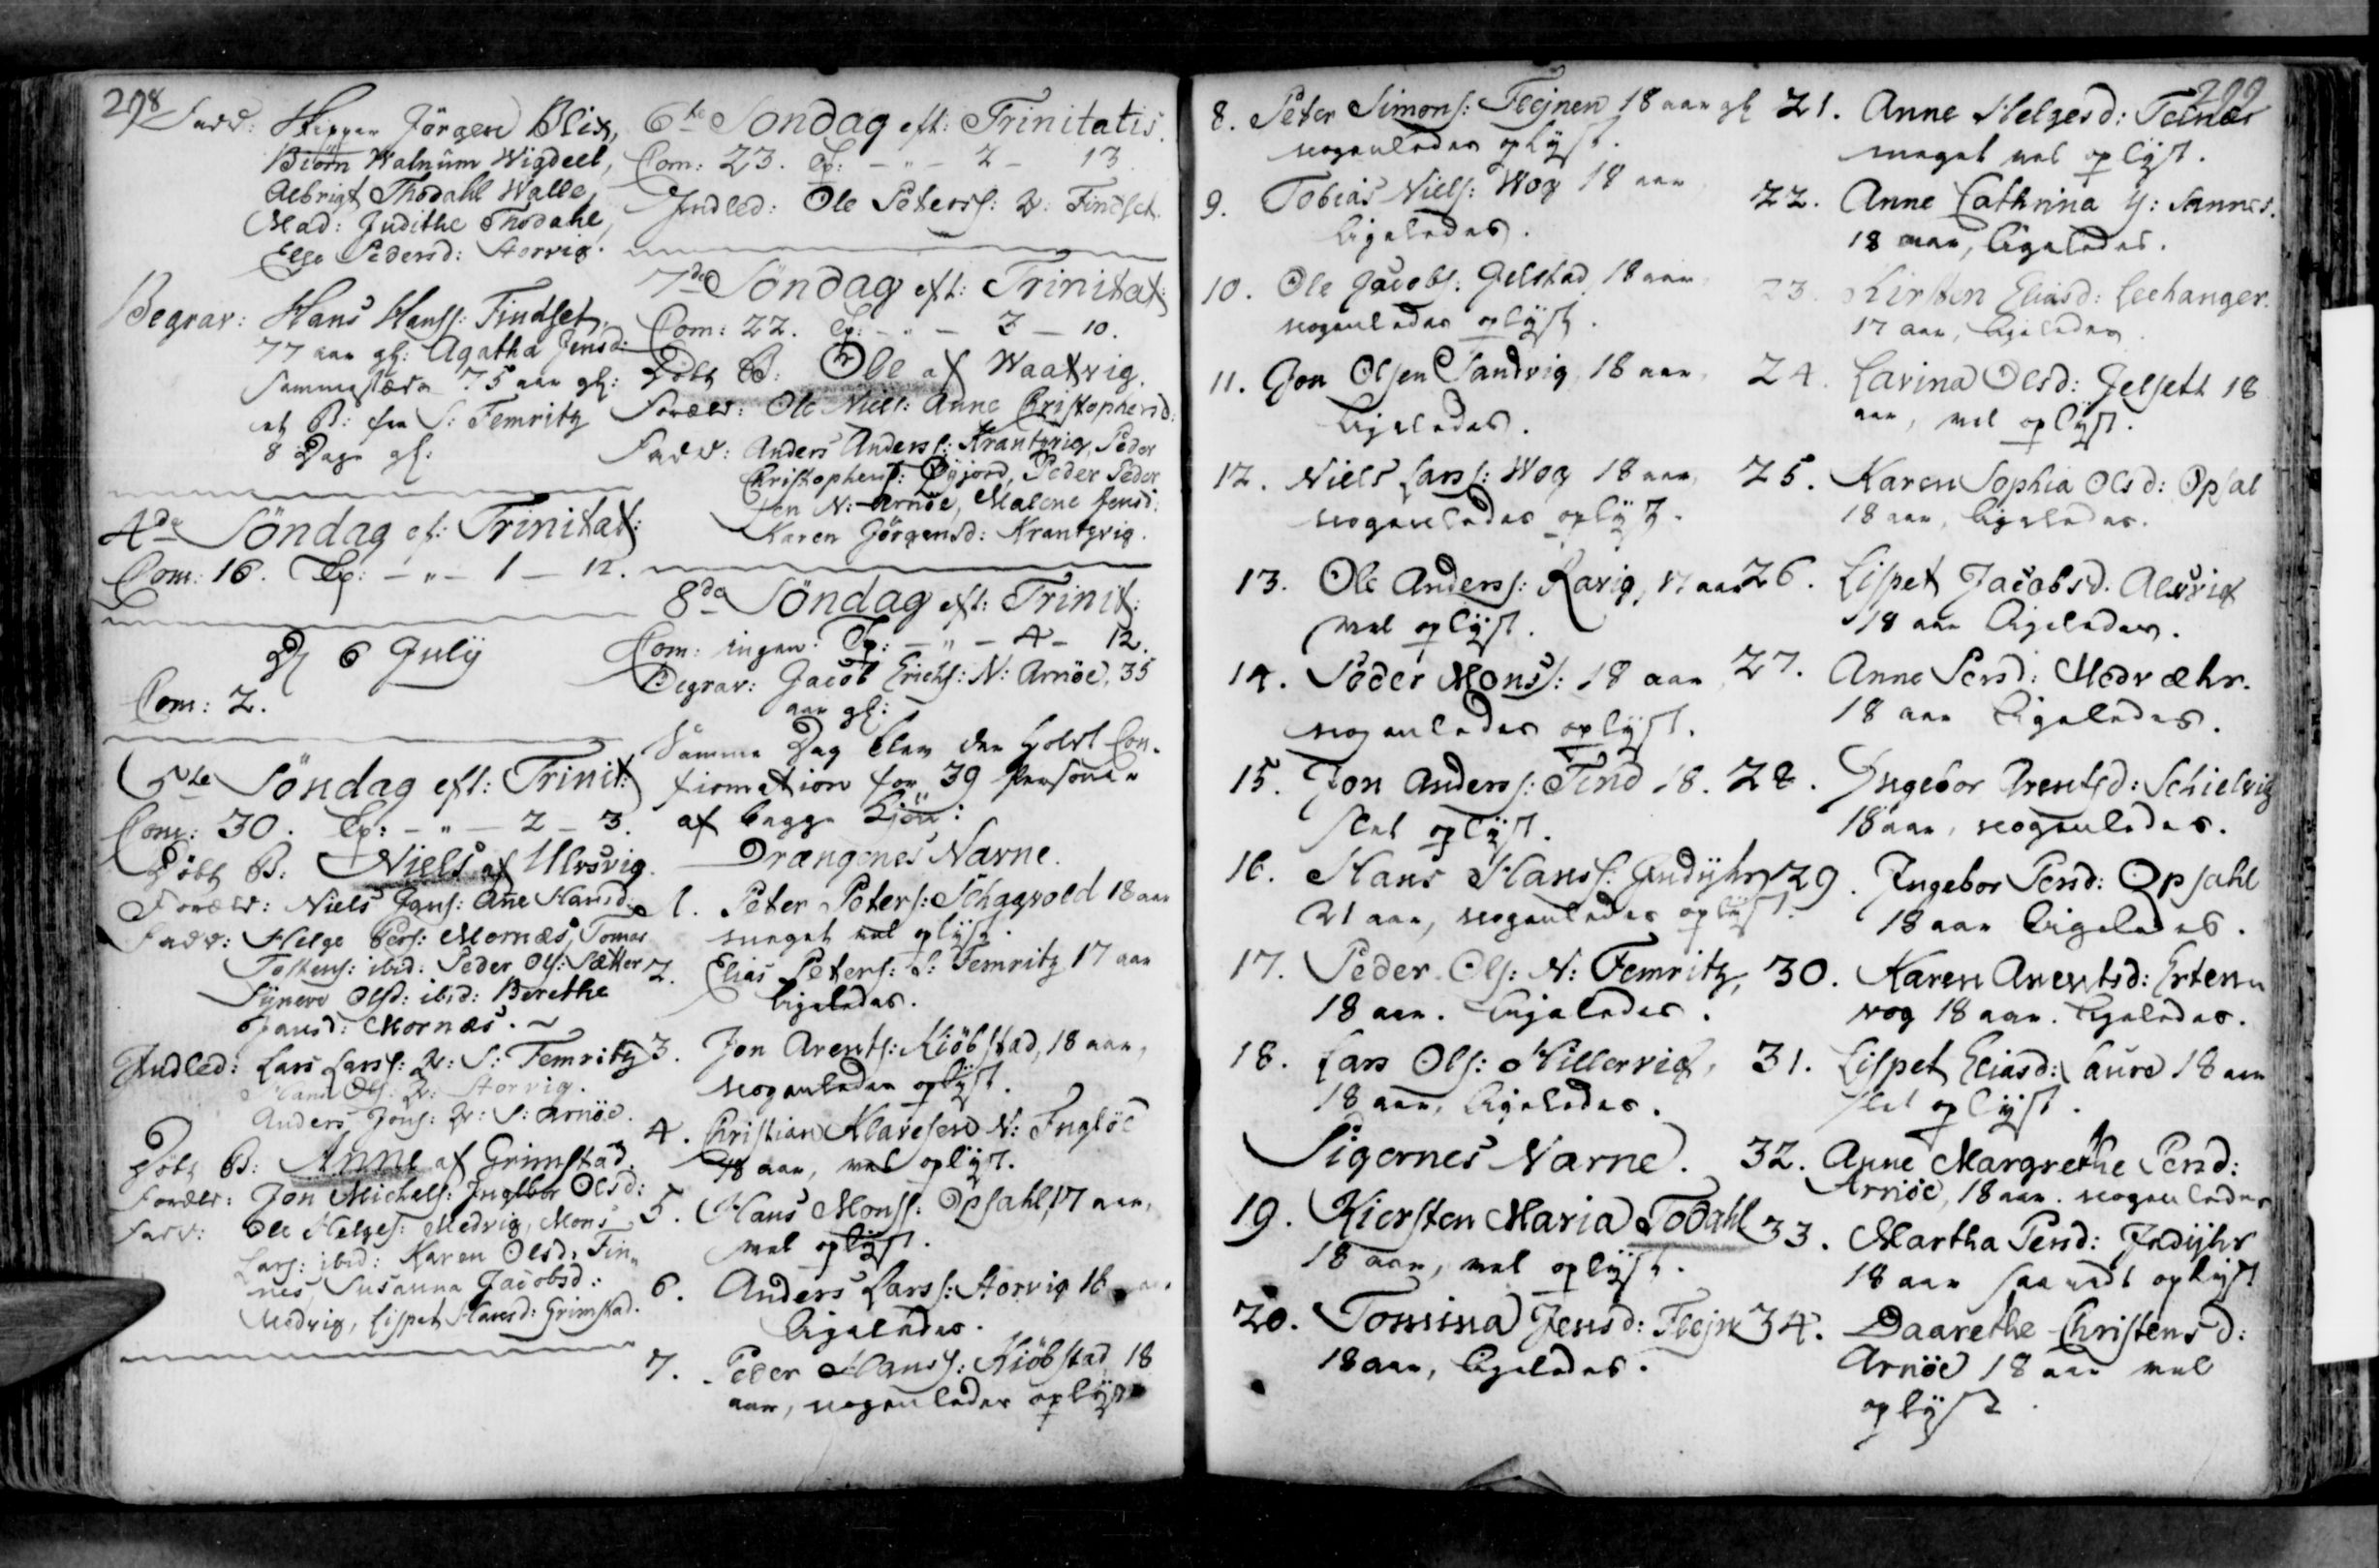 298
Fadd: Skipper Jörgen Blix,
Biörn Walnum Wigdeel,
Albrigt Thodahl Walle,
Mad: Judithe Thodahl,
Else Pedersd: Storvig.
Begrav: Hans Hanss: Findset
77 aar gl: Agatha Jensd:
sammestæds 75 aar gl:
et B: fra S: Femritz
8 Dage gl:
4de Söndag ef: Trinitat:
Com: 16. Cp: - " - 1 - 12.
D 6 Julij
Com: 2.
5te Söndag eft: Trinit:
Com: 30. Cp: - " - 2 - 3.
Döbt B: Niels af Ulvsvig.
Foræld: Niels Jons: Anne Hansd:
Fadd: Helge Pers: Mornæs, Tomas
Tostens: ibid: Peder Ols: Sætter
Sijnevo Olsd: ibid: Berethe
Jansd: Mornæs. ~
Indled: Lars Larss: K: S: Femritz
Hans Ols: K: Storvig.
Anders Jons: K: S: Arnöe.
Döbt B: Anne af Grimstad.
Foræld: Jon Michels: Ingebor Olsd:
Fadd: Ole Helges: Medvig, Mons
Lars: ibid: Karen Olsd: Fin-
nes Susanna Jacobsd:
Medvig, Lispet Hansd: Grimstad.
6te Söndag eft: Trinitatis.
Com: 23. Cp: - " - 2 - 13
Indled: Ole Peterss: K: Findset.
7de Söndag eft: Trinitat:
Com: 22. Cp: - " - 3 - 10.
Döbt B: Ole af Waatvig.
Foræld: Ole Niels: Anne Christophersd:
Fadd: Anders Anderss: Krantzvig, Peder
Christophers: Öÿjord, Peder Peder
sen N: Arnöe, Malene Jensd:
Karen Jörgensd: Krantzvig.
8de Söndag eft: Trinit:
Com: ingen. Cp: - " - 4 - 12.
Begrav: Jacob Erichs: N: Arnöe, 35
aar gl:
Samme Dag blev der holdt Con-
firmation for 39 Personer
af begge Kiön:
Drængenes Navne.
1. Peter Peters: Schagvold 18 aar
meget vel oplÿst.
2. Elias Peters: S: Femritz 17 aar
ligeledes.
3. Jon Arents: Kiöbstad, 18 aar,
nogenledes oplÿst.
4. Christian Klavesen N: Fugløe
18 aar, vel oplÿst.
5. Hans Monss: Opsahl, 17 aar,
vel oplÿst.
6. Anders Larss: Storvig 16 aar
ligeledes.
7. Peder Hanss: Kiöbstad 18
aar, nogenledes oplÿst
299
8. Peter Simons: Flejnen 18 aar gl
nogenledes oplÿst.
9. Tobias Niels: Wog 18 aar
ligeledes.
10. Ole Jacobs: Gilstad 18 aar
nogenledes oplÿst.
11. Jon Olsen Sandvig 18 aar,
ligeledes.
12. Niels Larss: Wog 18 aar,
nogenledes oplÿst.
13. Ole Anderss: Ravig, 17 aar
vel oplÿst.
14. Peder Monss: 18 aar
nogenledes oplÿst.
15. Jon Anderss: Tind 18.
slet oplÿst.
16. Hans Hanss: Indÿhr
21 aar, nogenledes oplÿst.
17. Peder Ols: N: Femritz,
18 aar. ligeledes.
18. Lars Ols: Hillervig,
18 aar, ligeledes.
Pigernes Navne.
19. Kiersten Maria Todahl
18 aar, vel oplÿst.
20. Tomina Jensd: Flejn
18 aar, ligeledes.
21. Anne Helgesd: Felnæs
meget vel oplÿst.
22. Anne Cathrina Y: Sannes.
18 aar, ligeledes.
23. Kirsten Eliasd: Leehanger.
17 aar, ligeledes
24. Lavina Olsd: Jelseth 18
aar, vel oplÿst.
25. Karen Sophia Olsd: Opsal
18 aar, ligeledes.
26. Lispet Jacobsd. Alsvig
18 aar ligeledes.
27. Anne Persd: Medvæhr.
18 aar ligeledes.
28. Ingebor Arentsd: Schielvig
18 aar, nogenledes.
29. Ingebor Persd: Opsahl
18 aar ligeledes.
30. Karen Arentsd: Erten-
vog 18 aar. ligeledes.
31. Lispet Eliasd: Laure 18 aar
slet oplÿst.
32. Anne Margrethe Persd:
Arnöe, 18 aar. nogenledes
33. Martha Persd: Indÿhr
18 aar saa vidt oplÿst
34. Daarethe Christensd:
Arnöe 18 aar vel
oplÿst.